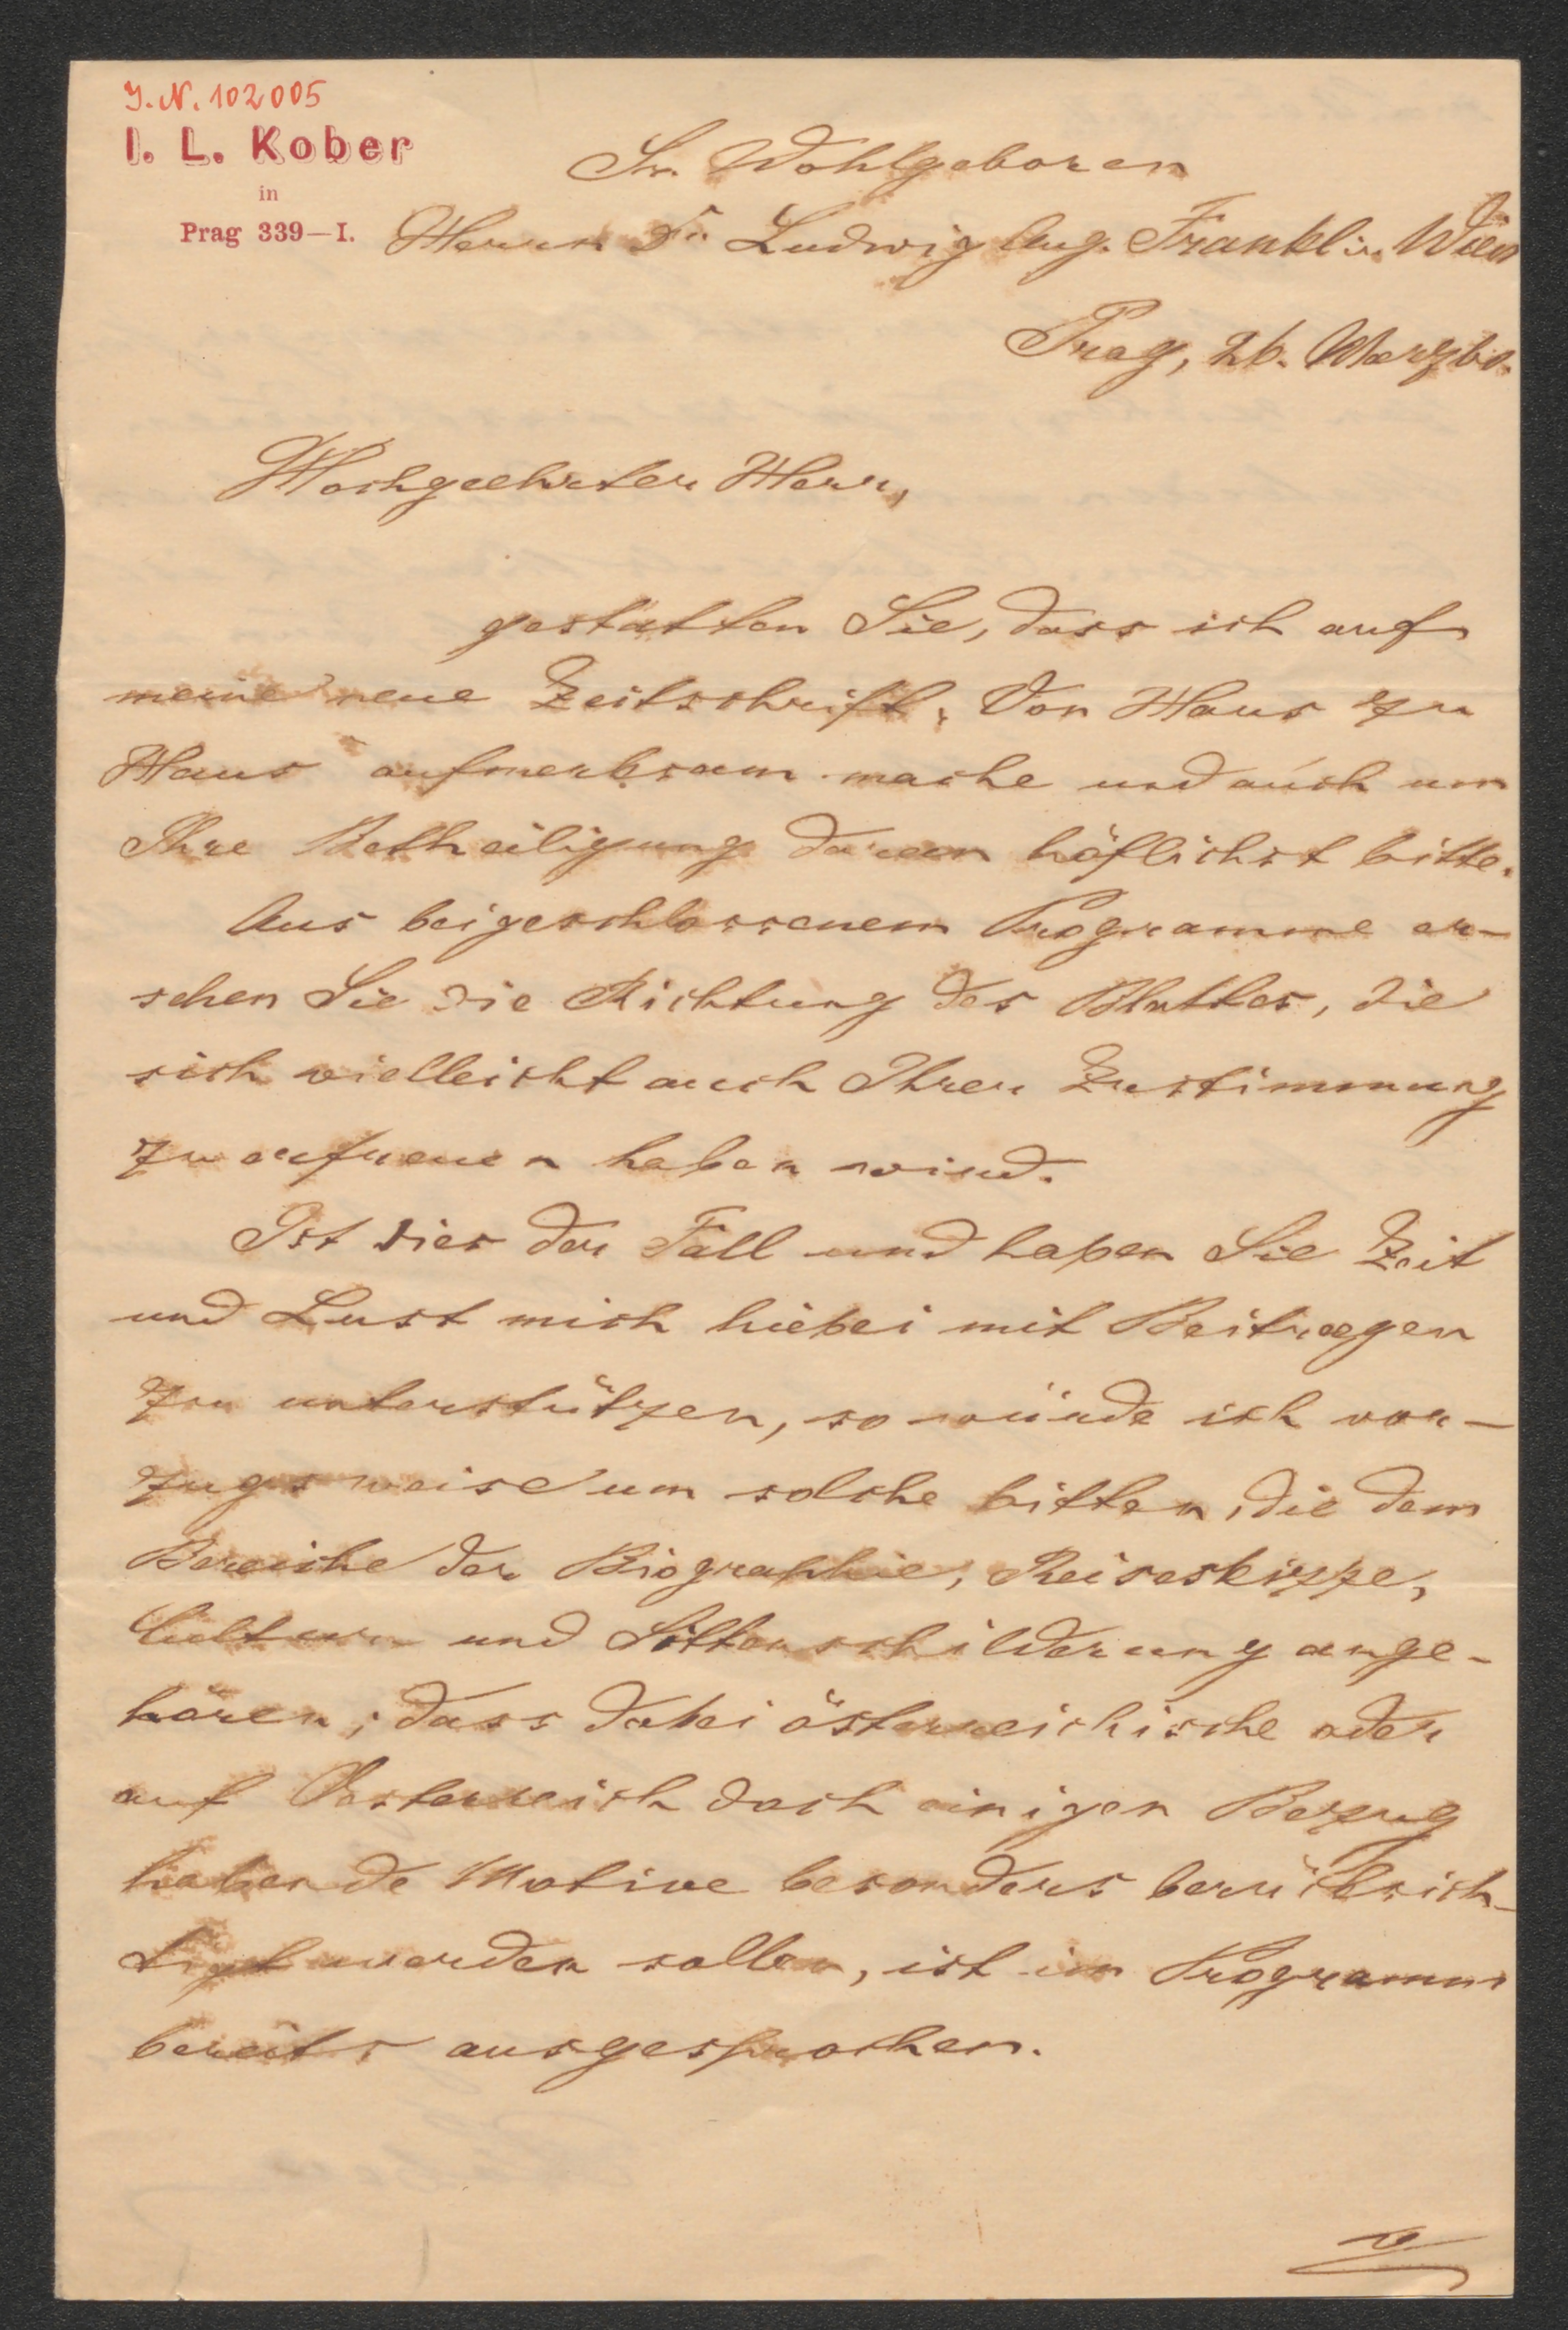 I.N. 102005
I. L. Kober
in
Prag 339—I.
Sr. Wohlgeboren
Herrn Dr. Ludwig Aug. Frankl in Wien
Prag, 26. Maerz 60.
Hochgeehrter Herr,
gestatten Sie, dass ich auf
meine neue Zeitschrift, Von Haus zu
Haus aufmerksam mache und auch um
Ihre Betheiligung daran höflichst bitte.
Aus beigeschlossenem Programme er-
sehen Sie die Richtung des Blattes, die
sich vielleicht auch Ihrer Zustimmung
zu erfreuen haben wird.
Ist dies der Fall und haben Sie Zeit
und Lust mich hiebei mit Beitraegen
zu unterstützen, so würde ich vor-
zugsweise um solche bitten, die dem
Bereiche der Biographie, Reiseskizze,
Cultur und Sittenschilderung ange-
hören; dass dabei österreichische oder
auf Oesterreich doch einigen Bezug
habende Motive besonders berücksich-
tigt werden sollen, ist im Programm
bereits ausgesprochen.